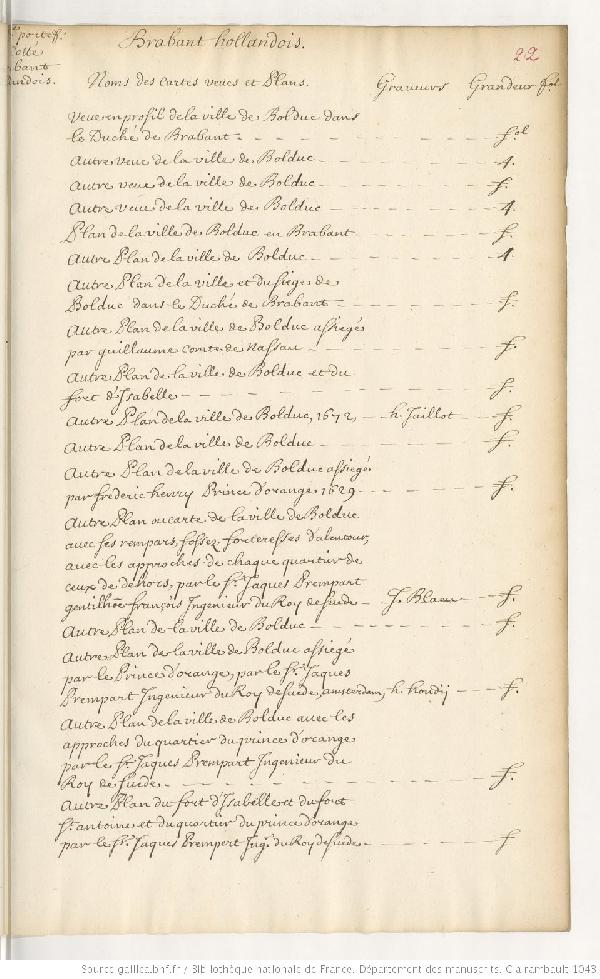 Brabant hollandois.
22
Noms des cartes veues et Plans. Graveurs Grandeur fol
Veue en profil de la ville de Bolduc dans
le Duché de Brabant - fol
Autre veue de la ville de Bolduc - 4.
Autre veue de la ville de Bolduc - f.
Autre veue de la ville de Bolduc - 4.
Plan de la ville de Bolduc en Brabant - f.
Autre Plan de la ville de Bolduc - 4.
Autre Plan de la ville et du siege de
Bolduc dans le Duché de Brabant - f.
Autre Plan de la ville de Bolduc assiegé
par guillaume comte de Nassau - f.
Autre Plan de la ville de Bolduc et du
fort d'Isabelle - f.
Autre Plan de la ville de Bolduc, 1672, - h. Jaillot - f.
Autre Plan de la ville de Bolduc - f.
Autre Plan de la ville de Bolduc assiegé
par frederic henry Prince d'orange 1629 - f.
Autre Plan ou carte de la ville de Bolduc
avec ses rempars, fossez, forteresses d'alentour,
avec les approches de chaque quartier de
ceux de dehors, par le Sr. Jaques Prempart
gentilhõe françois Ingenieur du Roy de suede - J. Blaeu - f.
Autre Plan de la ville de Bolduc - f.
Autre Plan de la ville de Bolduc assiegé
par le Prince d'orange, par le Sr. Jaques
Prempart Ingenieur du Roy de suede, amsterdam, h. hondij - f.
Autre Plan de la ville de Bolduc avec les
approches du quartier du prince d'orange
par le Sr. Jaques Prempart Ingenieur du
Roy de suede - f.
Autre Plan du fort d'Isabelle et du fort
St. antoine et du quartier du prince d'orange
par le Sr. Jaques Prempert Ingr. du Roy de suede - f
Source gallica.bnf.fr / Bibliothèque nationale de France. Département des manuscrits. Clairambault 1043